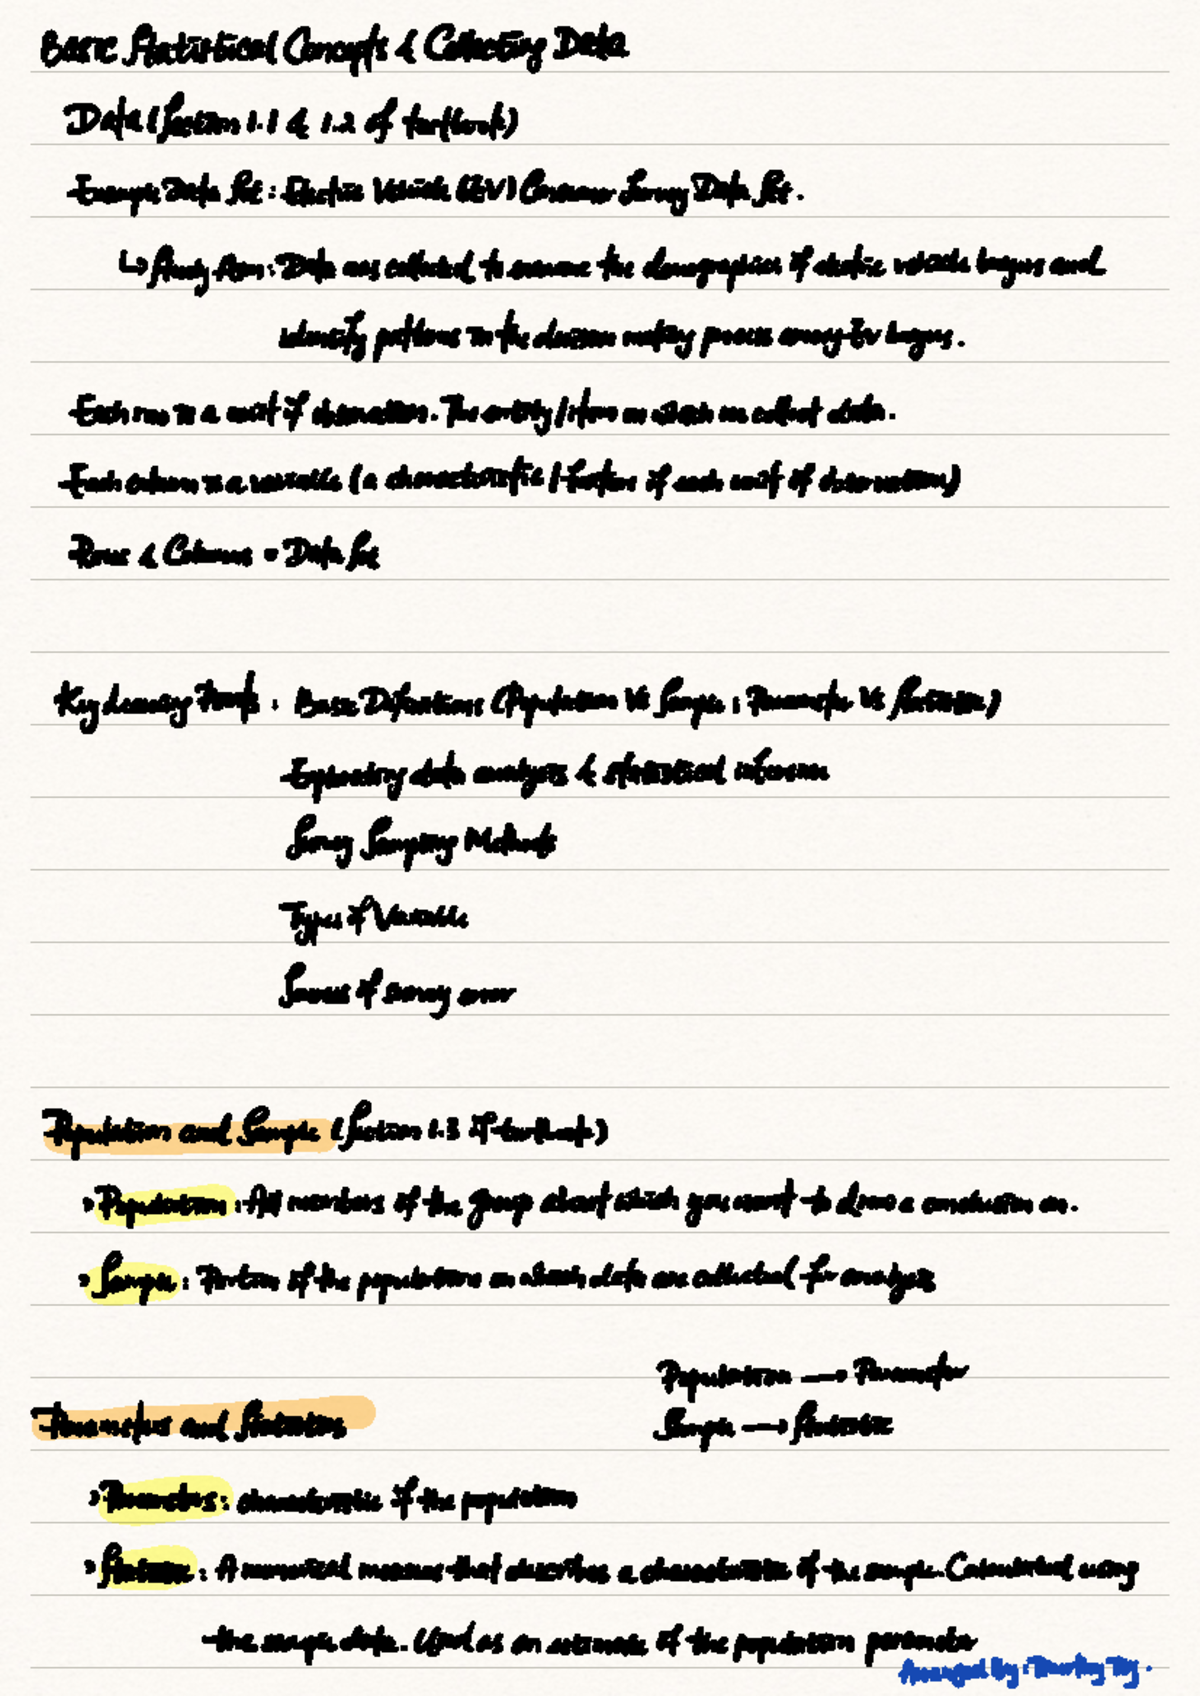 Basic Statistical Concepts & Collecting Data
Data (Section 1.1 & 1.2 of textbook)
Example Data Set : Electric Vehicle (EV) Consumer Survey Data Set.
↳ Study Aim : Data was collected to examine the demographics of electric vehicle buyers and
identify patterns in the decision making process among EV buyers.
Each row is a unit of observation. The entity / item on which we collect data.
Each column is a variable (a characteristic / feature of each unit of observation)
Rows & Columns = Data Set
Key Learning Points : Basic Definitions (Population Vs Sample ; Parameter Vs Statistic)
Exploratory data analysis & statistical inference
Survey Sampling Methods
Types of Variable
Sources of survey error
Population and Sample (Section 1.3 of textbook)
> Population : All members of the group about which you want to draw a conclusion on.
> Sample : Portion of the population on which data are collected for analysis
Population → Parameter
Sample → Statistic
Parameters and Statistics
> Parameters : characteristic of the population
> Statistic : A numerical measure that describes a characteristic of the sample. Calculated using
the sample data. Used as an estimate of the population parameter
Arranged By : Timothy